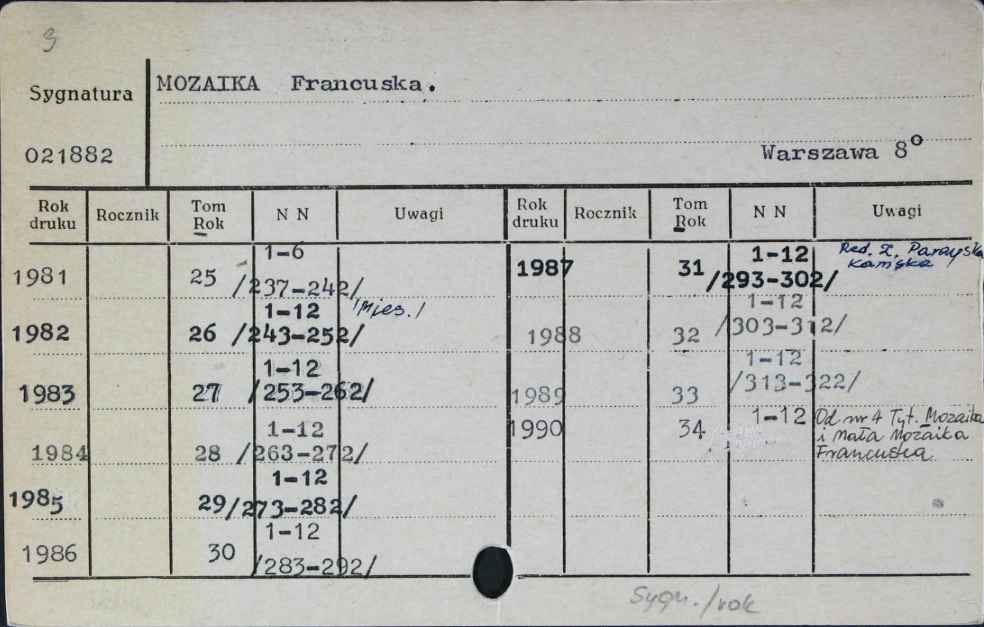 3
Sygnatura
MOZAIKA Francuska.
021882
Warszawa 8º
Rok druku Rocznik Tom Rok N N Uwagi Rok druku Rocznik Tom Rok N N Uwagi
1981 25 1-6 /237-242/
1982 26 1-12 /243-252/ /Mies./
1983 27 1-12 /253-262/
1984 28 1-12 /263-272/
1985 29 1-12 /273-282/
1986 30 1-12 /283-292/
1987 31 1-12 /293-302/ Red. Z.
Kamska
1988 32 1-12 /303-312/
1989 33 1-12 /313-322/
1990 34 1-12 Od nr 4 Tyt. Mozaika
i mała Mozaika
Francuska
Sygn./rok